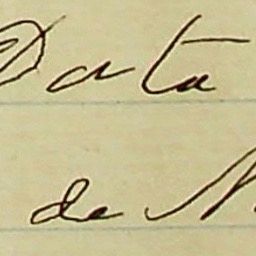 Data
de